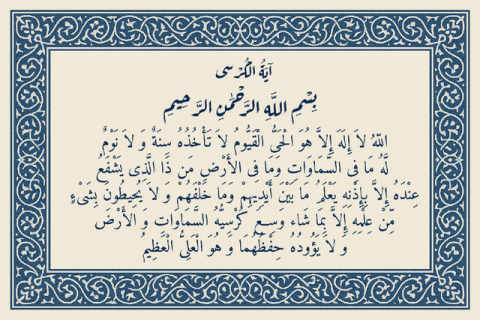 آيَةُ الْكُرْسى
بِسْمِ اللَّهِ الرَّحْمٰنِ الرَّحِيمِ
اللّهُ لاَ إِلَهَ إِلاَّ هُوَ الْحَيُّ الْقَيُّومُ لاَ تَأْخُذُهُ سِنَةٌ وَ لاَ نَوْمٌ
لَّهُ مَا فِي السَّمَاوَاتِ وَمَا فِي الأَرْضِ مَن ذَا الَّذِى يَشْفَعُ
عِنْدَهُ إِلاَّ بِإِذْنِهِ يَعْلَمُ مَا بَيْنَ أَيْدِيهِمْ وَمَا خَلْفَهُمْ وَ لاَ يُحِيطُونَ بِشَىْءٍ
مِّنْ عِلْمِهِ إِلاَّ بِمَا شَاء وَسِعَ كُرْسِيُّهُ السَّمَاوَاتِ وَ الأَرْضَ
وَ لاَ يَؤُودُهُ حِفْظُهُمَا وَ هُوَ الْعَلِيُّ الْعَظِيمُ